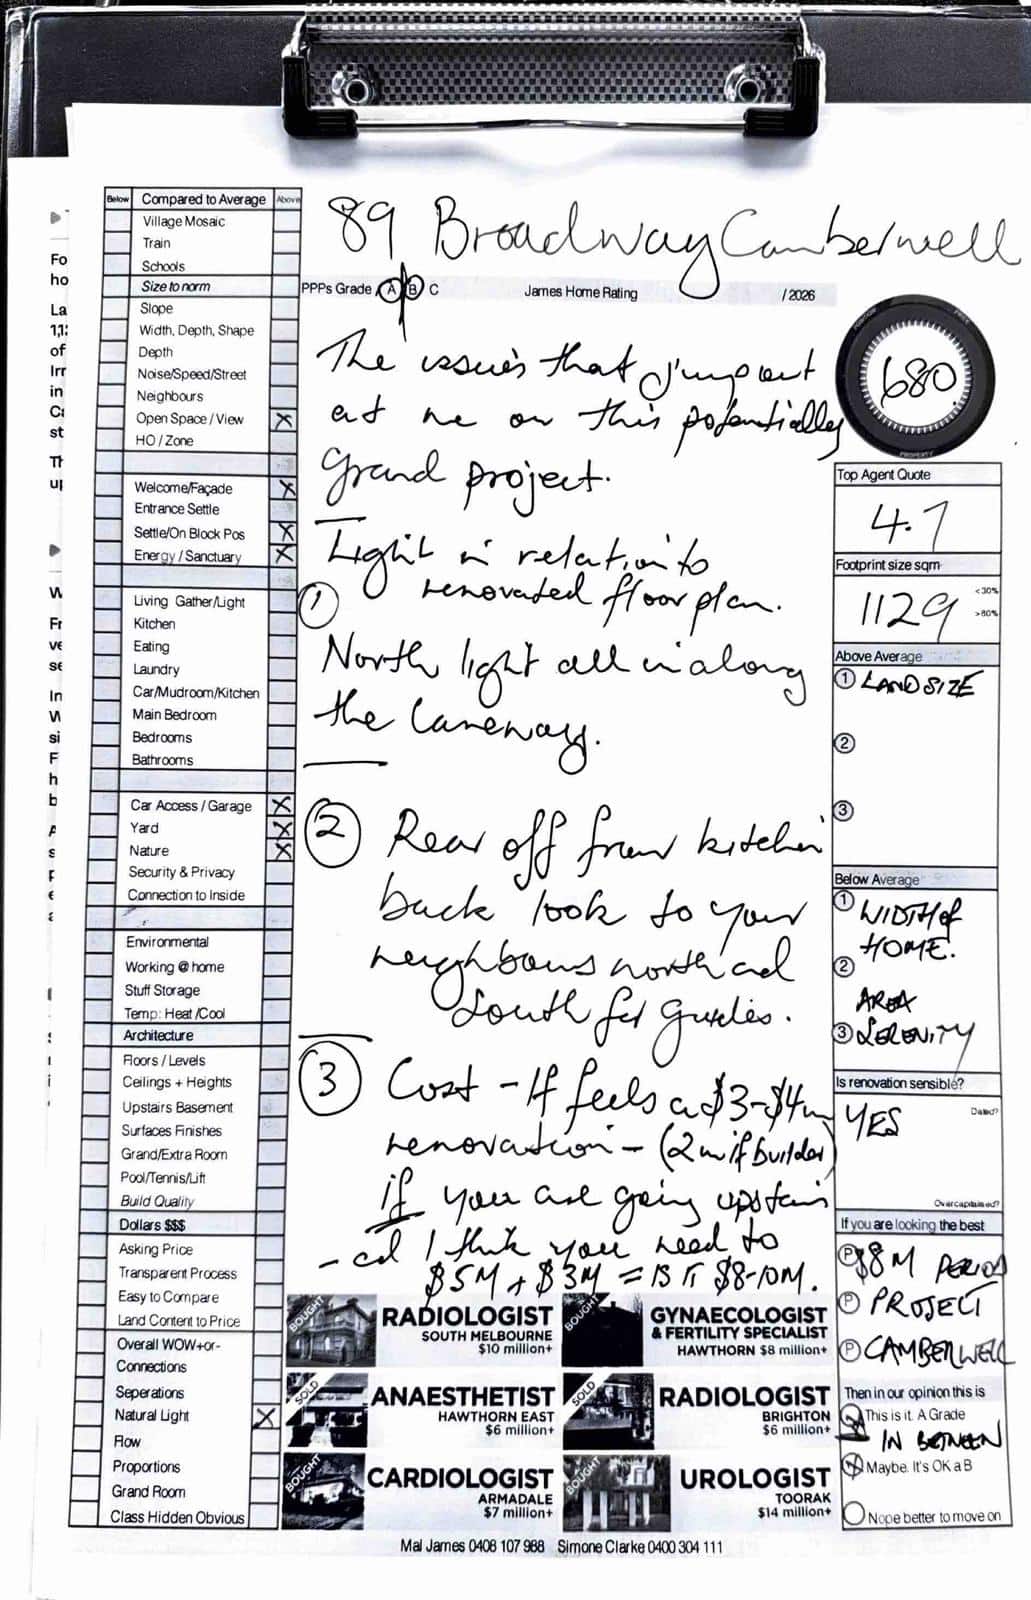 89 Broadway Camberwell
PPPs Grade A B C
James Home Rating
/2026
Below
Compared to Average
Above
Village Mosaic
Train
Schools
Size to norm
Slope
Width, Depth, Shape
Depth
Noise/Speed/Street
Neighbours
Open Space / View X
HO / Zone
Welcome/Façade X
Entrance Settle
Settle/On Block Pos X
Energy / Sanctuary X
Living Gather/Light
Kitchen
Eating
Laundry
Car/Mudroom/Kitchen
Main Bedroom
Bedrooms
Bathrooms
Car Access / Garage X
Yard X
Nature X
Security & Privacy
Connection to Inside
Environmental
Working @ home
Stuff Storage
Temp: Heat /Cool
Architecture
Floors / Levels
Ceilings + Heights
Upstairs Basement
Surfaces Finishes
Grand/Extra Room
Pool/Tennis/Lift
Build Quality
Dollars $$$
Asking Price
Transparent Process
Easy to Compare
Land Content to Price
Overall WOW+or-
Connections
Seperations
Natural Light X
Flow
Proportions
Grand Room
Class Hidden Obvious
The issues that jump out
at me on this potentially
grand project.
Light in relation to
① renovated floor plan.
North light all in along
the laneway.
② Rear off from kitchen
back look to your
neighbours north and
south for guides.
③ Cost - It feels a $3-$4m
renovation - (2m if builder)
if you are going upstairs
- and I think you need to
$5M + $3M = IS IT $8-10M.
POSITION
PRICE
680
PROPERTY
Top Agent Quote
4.7
Footprint size sqm
<30%
1129
>80%
Above Average
① LAND SIZE
②
③
Below Average
① WIDTH of
HOME.
②
AREA
③ SERENITY
Is renovation sensible?
Dated?
YES
Overcapitalised?
If you are looking the best
Ⓟ $8M PERIOD
Ⓟ PROJECT
Ⓟ CAMBERWELL
Then in our opinion this is
This is it. A Grade
IN BETWEEN
Maybe. It's OK a B
Nope better to move on
BOUGHT
RADIOLOGIST
SOUTH MELBOURNE
$10 million+
BOUGHT
GYNAECOLOGIST
& FERTILITY SPECIALIST
HAWTHORN $8 million+
SOLD
ANAESTHETIST
HAWTHORN EAST
$6 million+
SOLD
RADIOLOGIST
BRIGHTON
$6 million+
BOUGHT
CARDIOLOGIST
ARMADALE
$7 million+
BOUGHT
UROLOGIST
TOORAK
$14 million+
Mal James 0408 107 988 Simone Clarke 0400 304 111